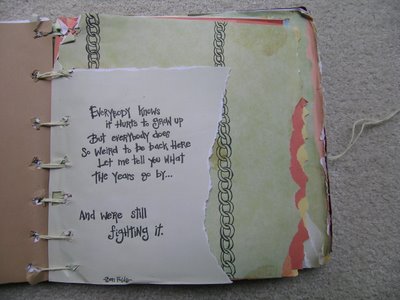 Everybody knows
it hurts to grow up
But everybody does
So weird to be back here
Let me tell you what
the years go by...
And we're still
fighting it.
-Ben Folds-